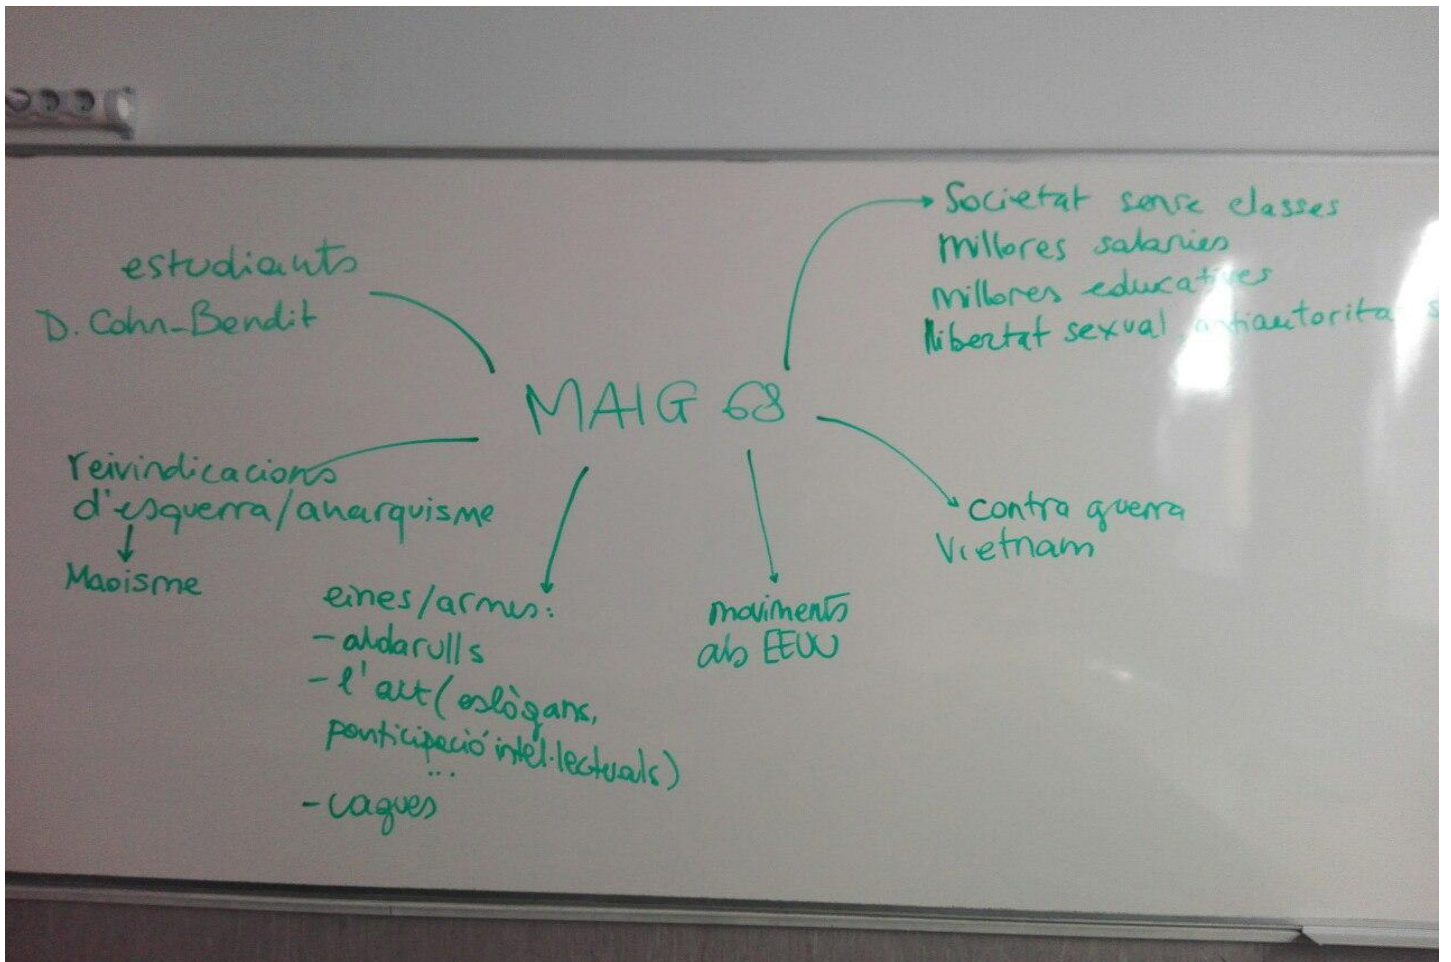 estudiants
D. Cohn-Bendit
MAIG 68
Societat sense classes
millores salaries
millores educatives
llibertat sexual
reivindicacions
d'esquerra/anarquisme
Maoisme
eines/armes:
- aldarulls
- l'art (eslògans,
participació intel·lectuals)
...
- vagues
moviments
als EEUU
contra guerra
Vietnam